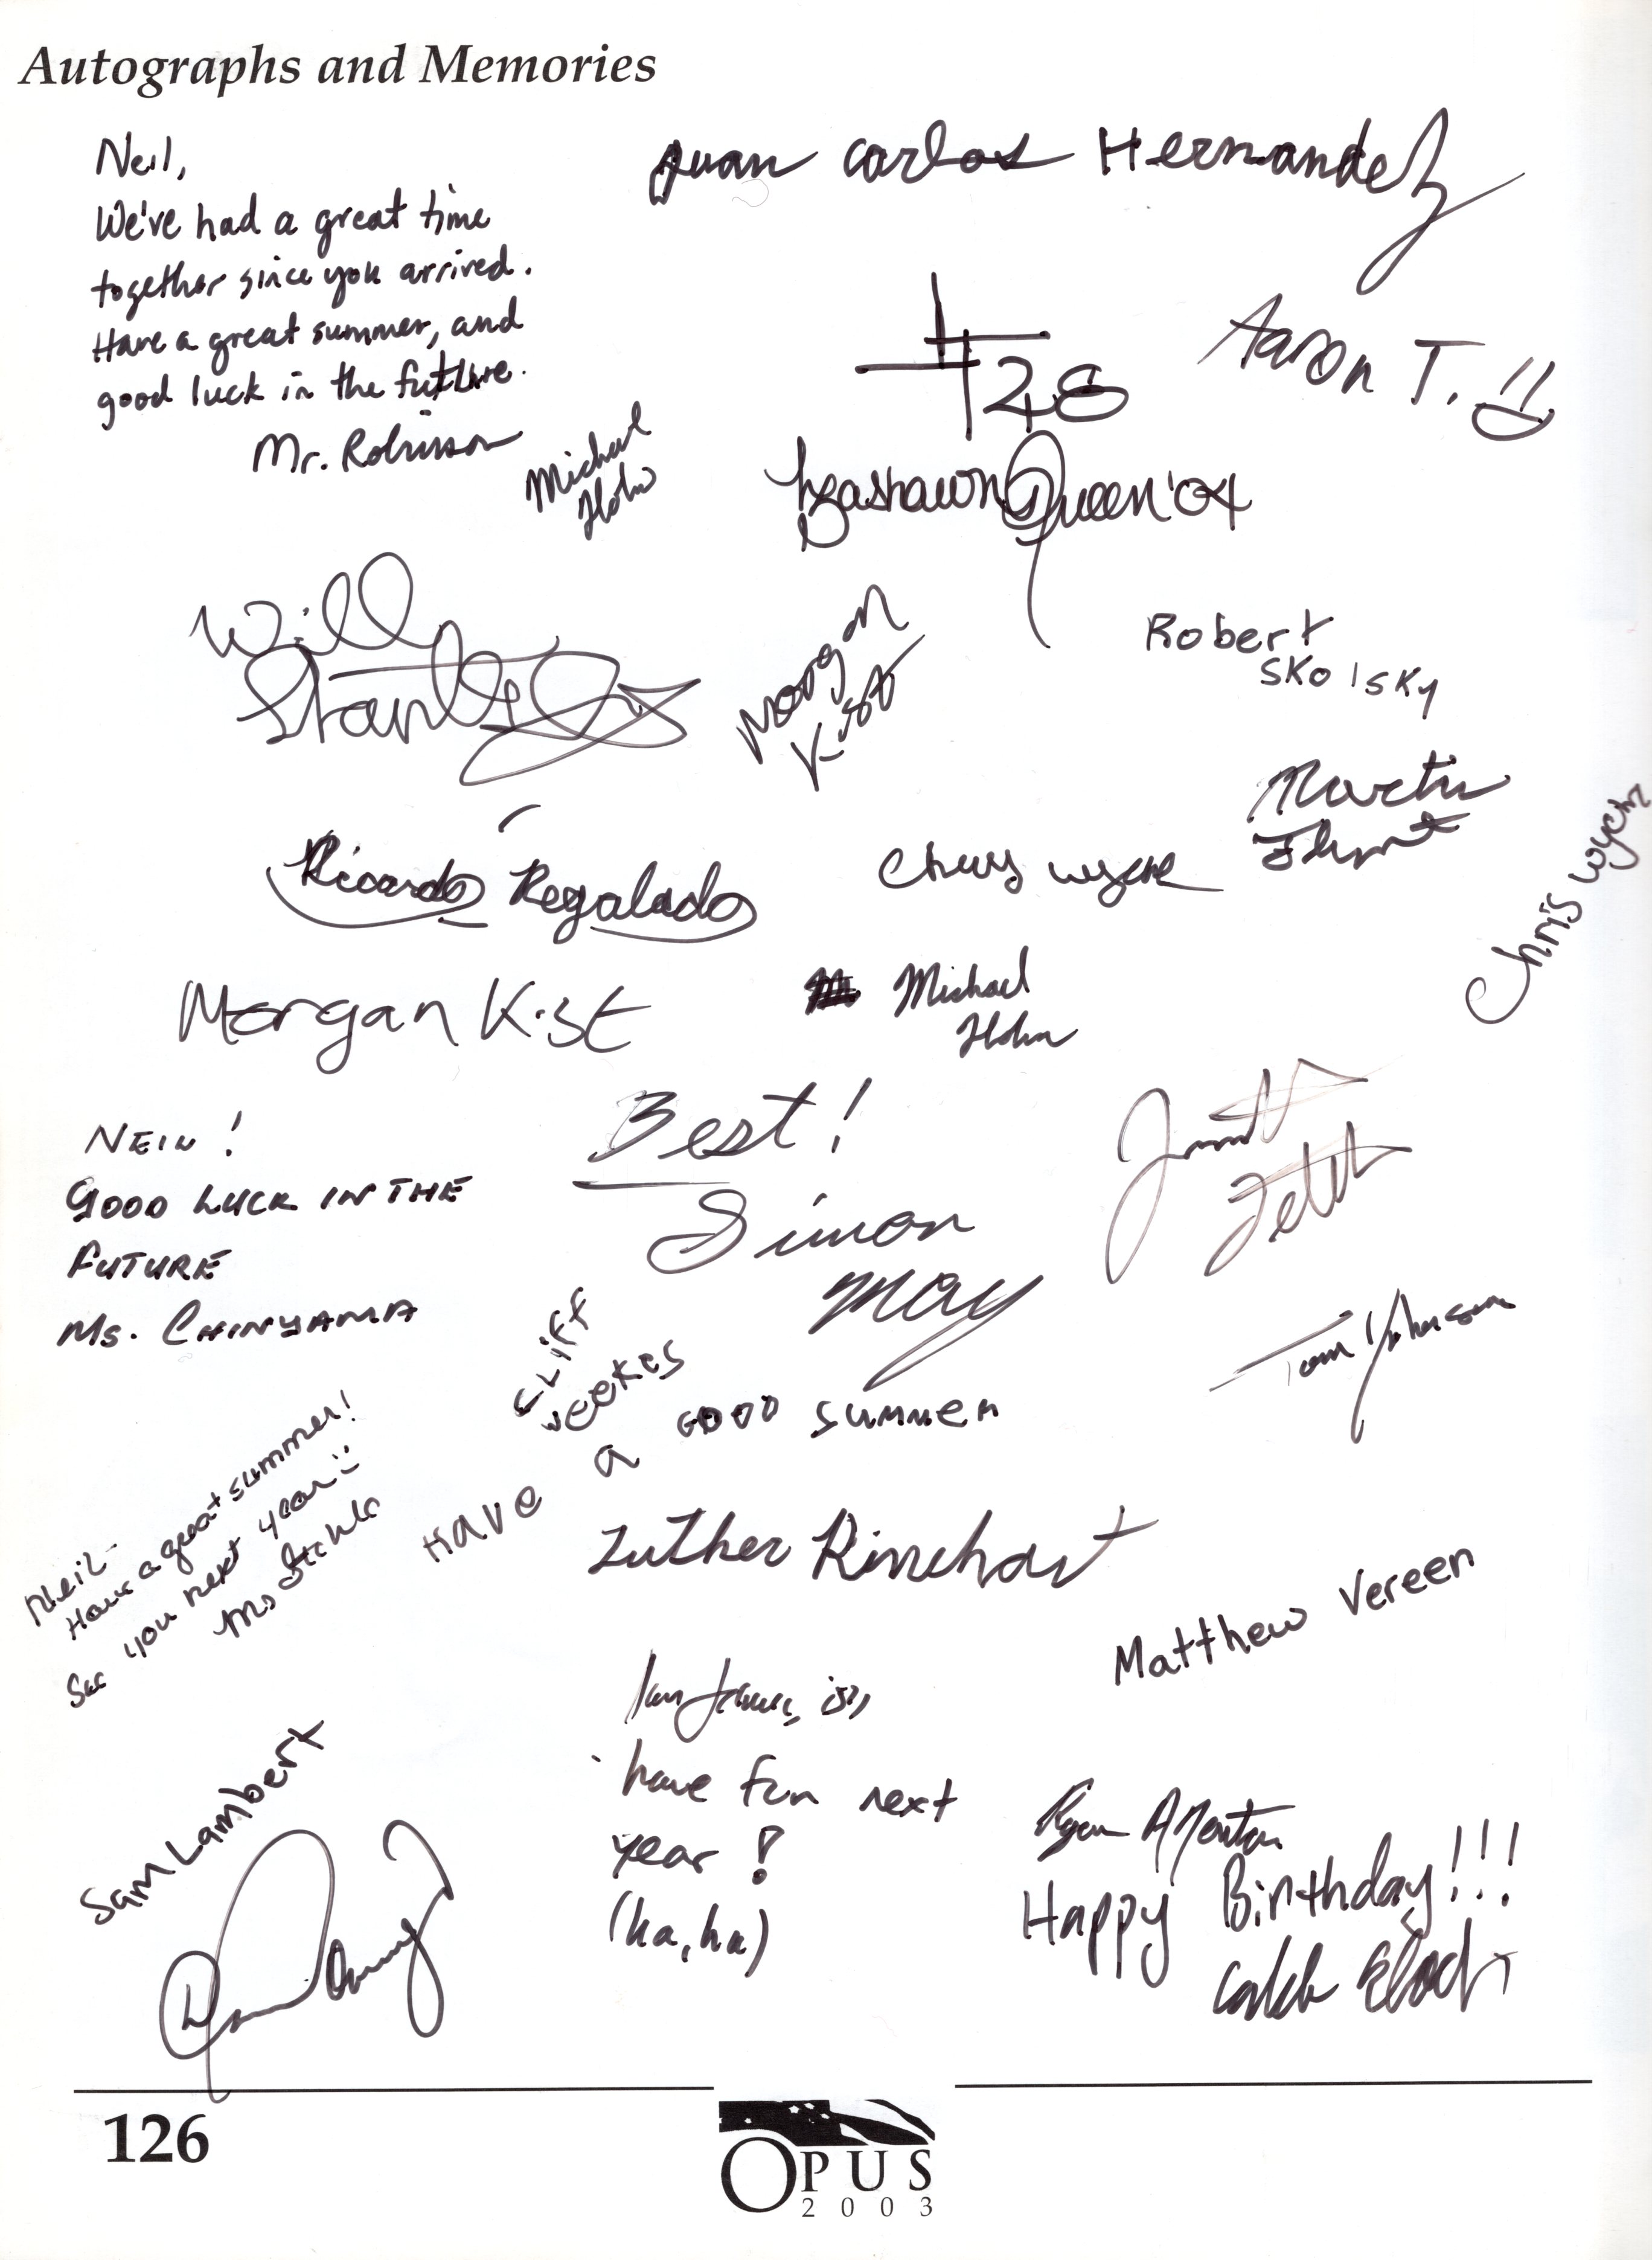 Autographs and Memories
Neil,
We've had a great time
together since you arrived.
Have a great summer, and
good luck in the future.
Mr. Robinson
Juan Carlos Hernandez
#28
Aaron T.
Michael
Hohn
Queen '04
Will
Morgan
Kist
Robert
Skolsky
Ricardo Regalado
Martin
Chris
Chris wyche
Morgan Kist
Michael
Hohn
NEIL!
GOOD LUCK IN THE
FUTURE
MS. CHINYAMA
Best!
Simon
May
Tom Johnson
CLIFF
WEEKES
HAVE a GOOD SUMMER
Neil-
Have a great summer!
See you next year
Ms
Luther Rinehart
Matthew Vereen
Sam Lambert
Ian
have fun next
year!
(ha, ha)
Ryan
Happy Birthday!!!
Caleb
126
OPUS
2003